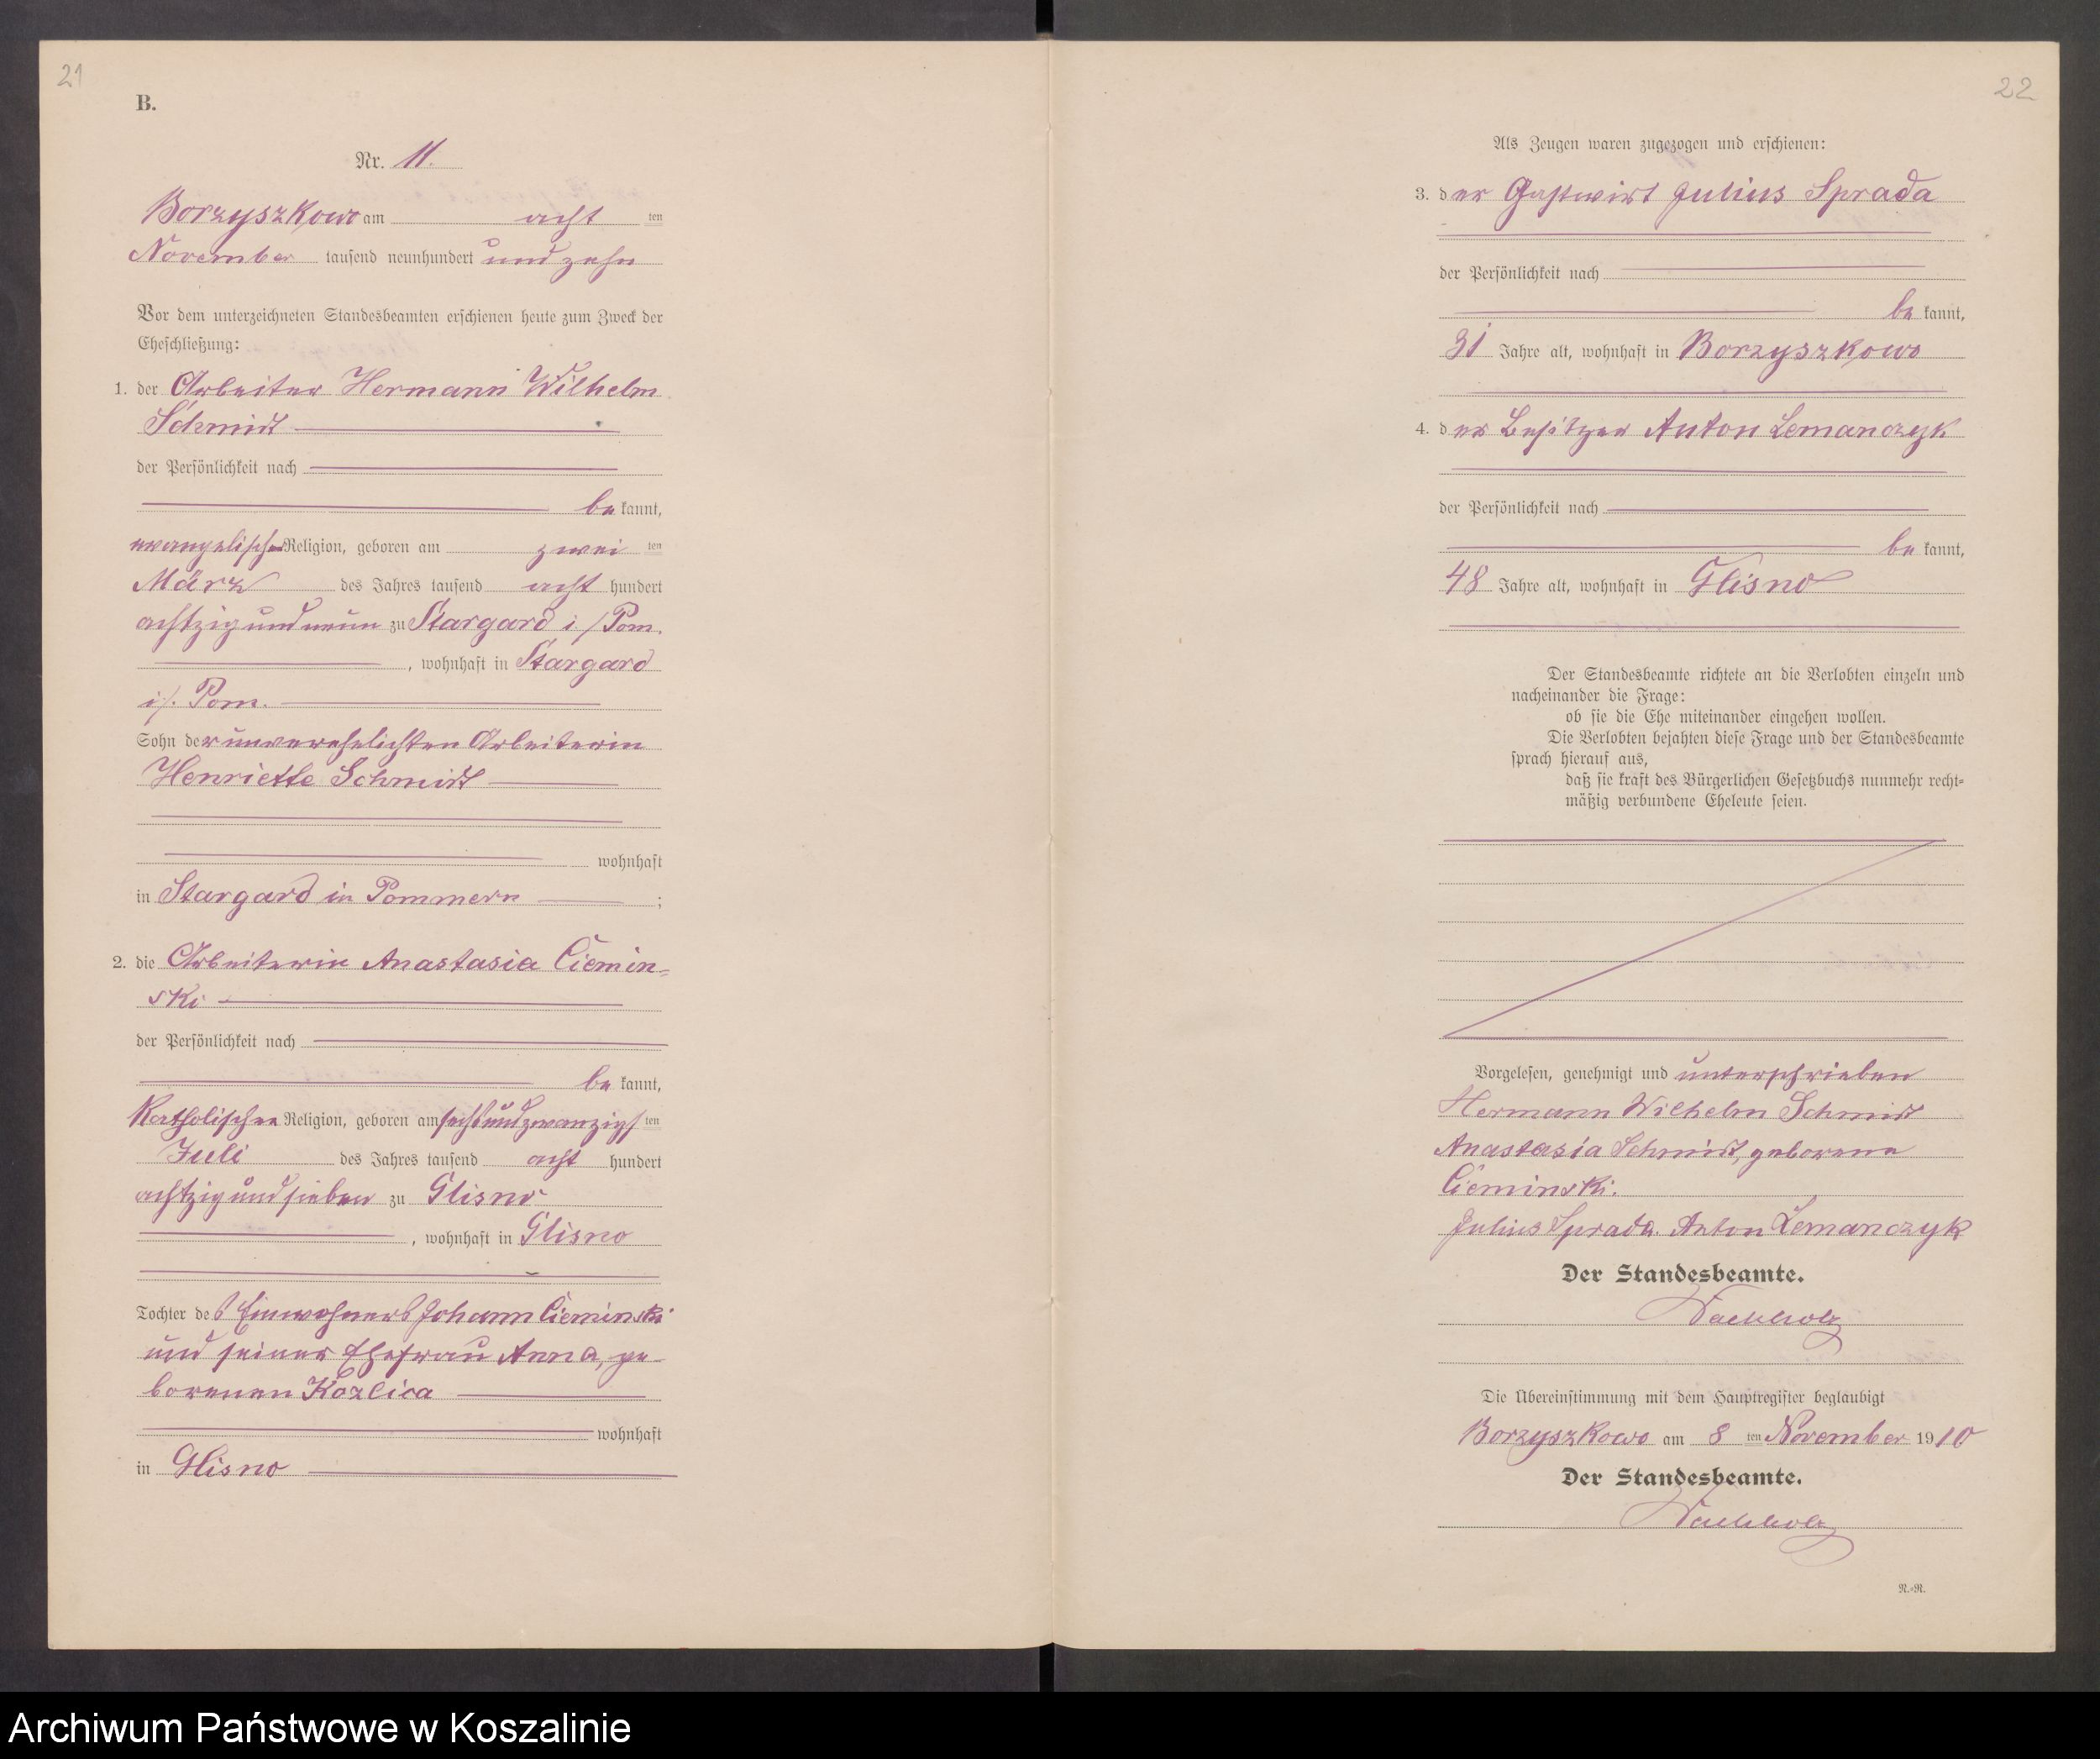 21
B.
Nr. 11.
Borzyszkowo am acht ten
November tausend neunhundert und zehn
Vor dem unterzeichneten Standesbeamten erschienen heute zum Zweck der
Eheschließung:
1. der Arbeiter Hermann Wilhelm
Schmidt
der Persönlichkeit nach
be kannt,
evangelischer Religion, geboren am zwei ten
März des Jahres tausend acht hundert
achtzig und neun zu Stargard i/Pom.
, wohnhaft in Stargard
i/. Pom.
Sohn der unverehelichten Arbeiterin
Henriette Schmidt
wohnhaft
in Stargard in Pommern ;
2. die Arbeiterin Anastasia Ciemin-
ski
der Persönlichkeit nach
be kannt,
katholischer Religion, geboren am sechsundzwanzigs ten
Juli des Jahres tausend acht hundert
achtzig und sieben zu Glisno
, wohnhaft in Glisno
Tochter des Einwohners Johann Cieminski
und seiner Ehefrau Anna, ge-
borenen Kozlica
wohnhaft
in Glisno
22
Als Zeugen waren zugezogen und erschienen:
3. der Gastwirt Julius Sprada
der Persönlichkeit nach
be kannt,
31 Jahre alt, wohnhaft in Borzyszkowo
4. der Besitzer Anton Lemanczyk
der Persönlichkeit nach
be kannt,
48 Jahre alt, wohnhaft in Glisno
Der Standesbeamte richtete an die Verlobten einzeln und
nacheinander die Frage:
ob sie die Ehe miteinander eingehen wollen.
Die Verlobten bejahten diese Frage und der Standesbeamte
sprach hierauf aus,
daß sie kraft des Bürgerlichen Gesetzbuchs nunmehr recht-
mäßig verbundene Eheleute seien.
Vorgelesen, genehmigt und unterschrieben
Hermann Wilhelm Schmidt
Anastasia Schmidt, geborene
Cieminski.
Julius Sprada. Anton Lemanczyk
Der Standesbeamte.
Die Übereinstimmung mit dem Hauptregister beglaubigt
Borzyszkowo am 8 ten November 1910
Der Standesbeamte.
R.-R.
Archiwum Państwowe w Koszalinie